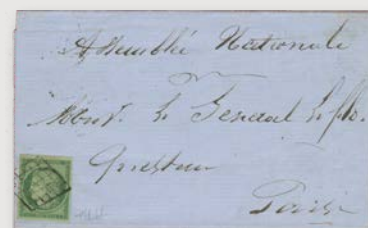 Assemblée Nationale
Monr. le General Leflo.
Questeur
Paris